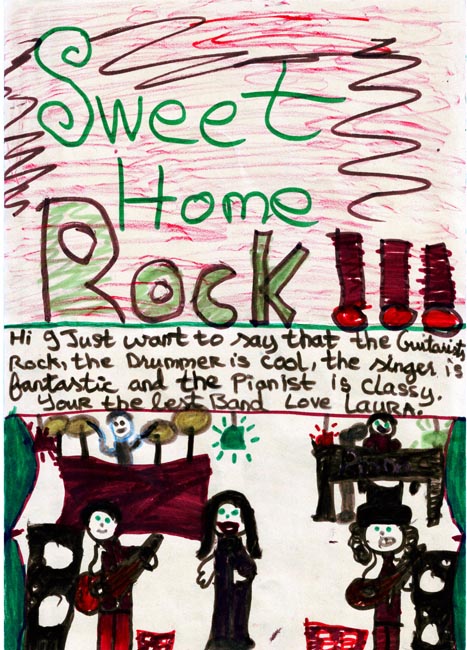 Sweet
Home
Rock!!!
Hi I Just want to say that the Guitarists
Rock, the Drummer is Cool, the singer is
fantastic and the Pianist is classy.
Your the best Band Love Laura.